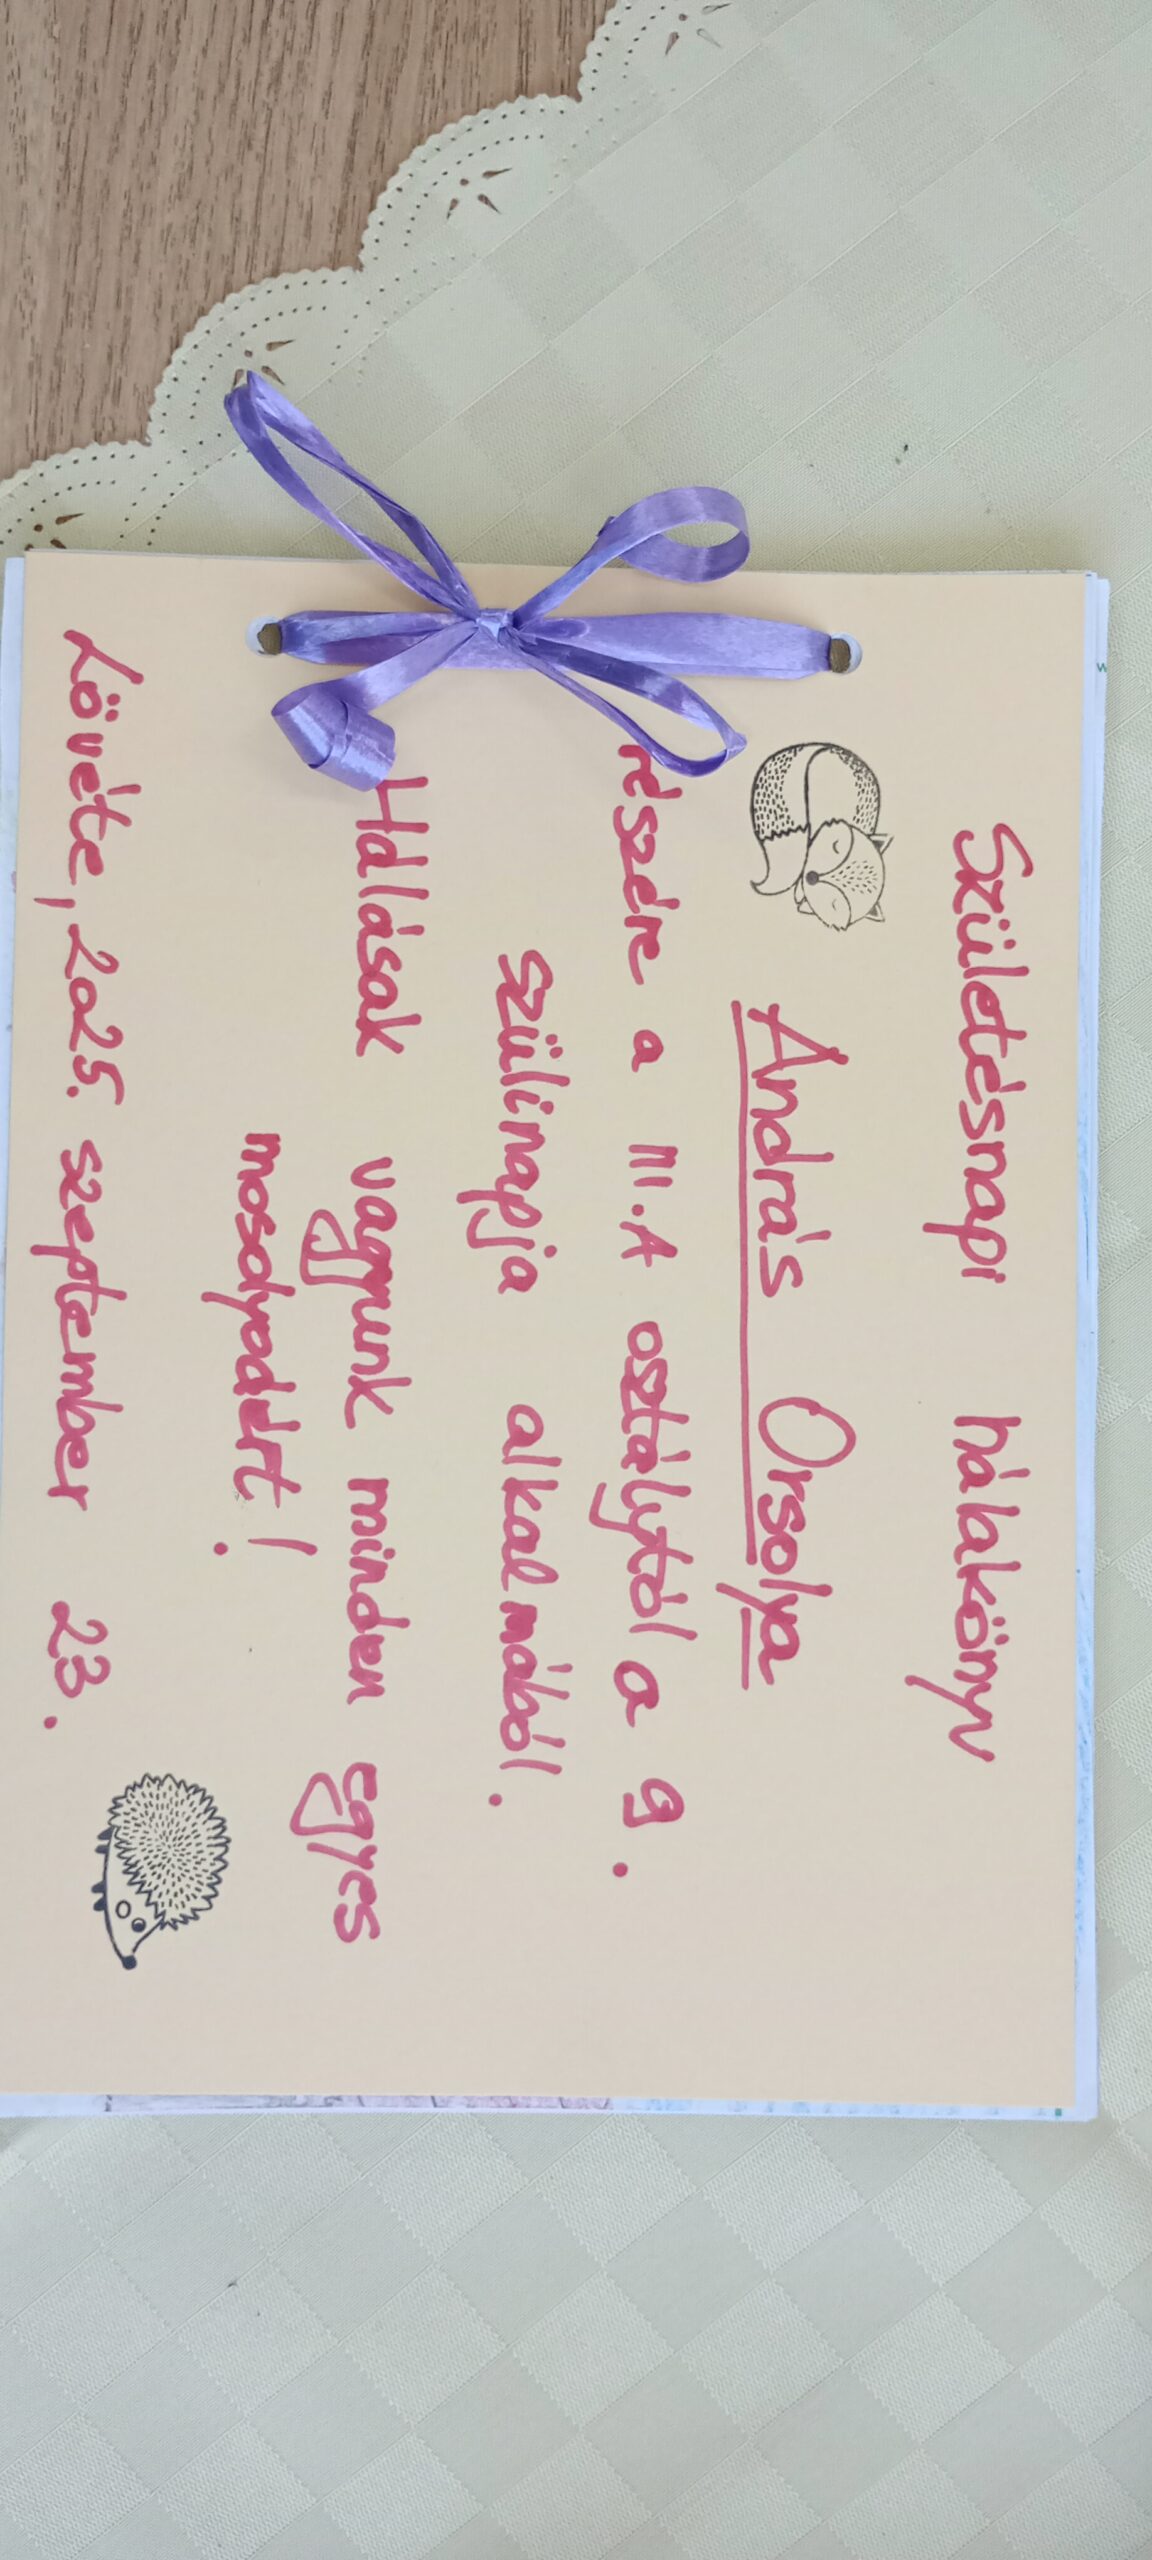 Születésnapi hálakönyv
András Orsolya
részére a III.A osztálytól a 9.
szülinapja alkalmából.
Hálásak vagyunk minden egyes
mosolyodért!
Kövéte, 2025. szeptember 23.